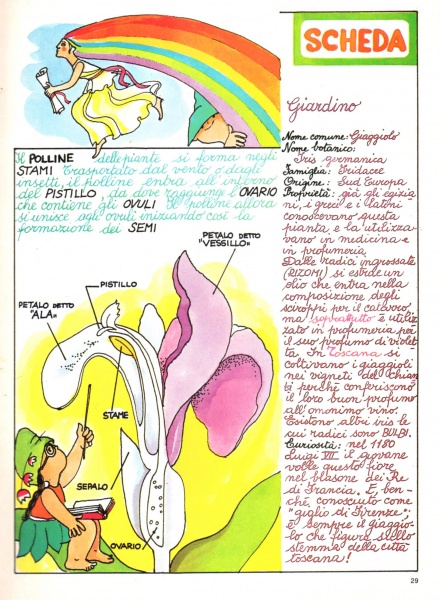 SCHEDA
Il POLLINE delle piante si forma negli
STAMI Trasportato dal vento o degli
insetti, il polline entra all'interno
del PISTILLO da dove raggiunge OVARIO
che contiene gli OVULI Il polline allora
si unisce agli ovuli iniziando così la
formazione dei SEMI
PETALO DETTO
"VESSILLO"
PISTILLO
PETALO DETTO
"ALA"
STAME
SEPALO
OVARIO
Giardino
Nome comune: Giaggiolo
Nome botanico:
Iris germanica
Famiglia: Iridacee
Origine: Sud Europa
Proprietà: già gli egizia
ni, i greci e i latini
conoscevano questa
pianta, e la utilizza
vano in medicina e
in profumeria.
Dalle radici ingrossate
(RIZOMI) si estrae un
olio che entra nella
composizione degli
sciroppi per il catarro,
ma soprattutto è utiliz
zato in profumeria per
il suo profumo di violet
ta In Toscana si
coltivano i giaggioli
nei vigneti del Chian
ti perché conferiscono
il loro buon profumo
all'omonimo vino.
Esistono altri iris le
cui radici sono BULBI.
Curiosità: nel 1180
Luigi VII il giovane
volle questo fiore
nel blasone dei Re
di Francia. E, ben-
ché, conosciuto come
"giglio di Firenze",
è sempre il giaggio-
lo che figura sullo
stemma della città
toscana!
29